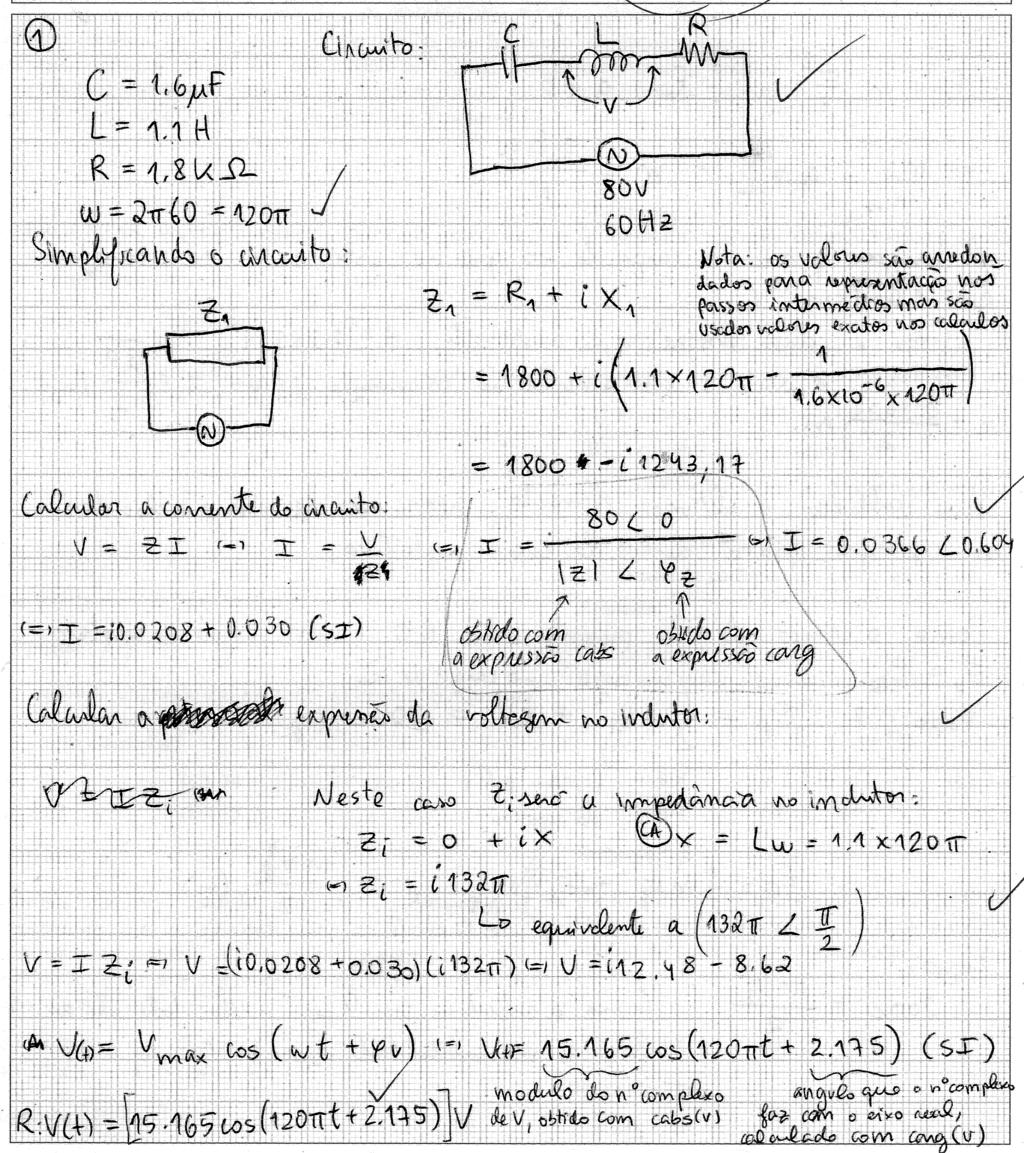 ①
Circuito:
C L R
V
80V
60Hz
C = 1.6μF
L = 1.1 H
R = 1,8 K Ω
ω = 2π60 = 120π
Simplificando o circuito:
Z₁
Z₁ = R₁ + i X₁
Nota: os valores são arredon
dados para representação nos
passos intermédios mas são
usados valores exatos nos calculos
= 1800 + i(1.1×120π - 1/(1.6×10⁻⁶×120π))
= 1800 - i 1243,17
Calcular a corrente do circuito:
V = ZI (=) I = V/Z (=) I = 80∠0 / |Z|∠φ_Z (=) I = 0.0366 ∠0.604
(=) I = i0.0208 + 0.030 (SI)
obtido com
a expressão cabs
obtido com
a expressão carg
Calcular a expressão da voltagem no indutor:
Neste caso Zᵢ será a impedância no indutor:
Zᵢ = 0 + iX
(CA) X = Lω = 1.1×120π
(=) Zᵢ = i 132π
↳ equivalente a (132π ∠ π/2)
V = I Zᵢ (=) V = (i0.0208 + 0.030)(i132π) (=) V = i12.48 - 8.62
V(t) = V_max cos(ωt + φ_v) (=) V(t) = 15.165 cos(120πt + 2.175) (SI)
modulo do nº complexo
de V, obtido com cabs(v)
angulo que o nº complexo
faz com o eixo real,
calculado com carg(v)
R: V(t) = [15.165 cos(120πt + 2.175)] V